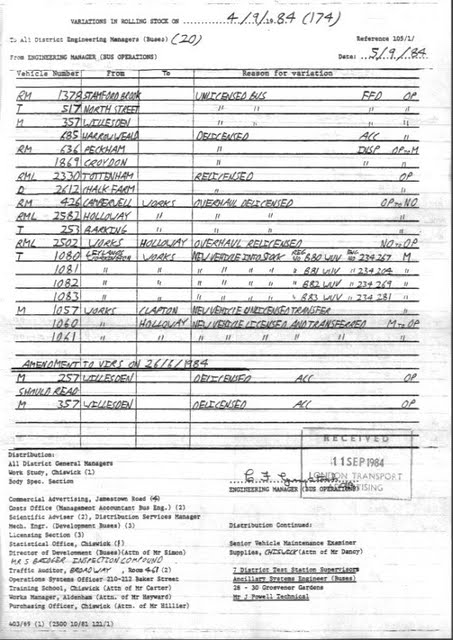 VARIATIONS IN ROLLING STOCK ON 4/9/1984 (174)
To All District Engineering Managers (Buses) (20) Reference 105/1/
From ENGINEERING MANAGER (BUS OPERATIONS) Date: 5/9/84
Vehicle Number From To Reason for variation
RM 1378 STAMFORD BROOK UNLICENSED BUS FFD OP
T 517 NORTH STREET " " " "
M 357 WILLESDEN " " " "
685 HARROW WEALD DELICENSED ACC "
RM 636 PECKHAM " INSP OP TO M
1869 CROYDON " " "
RML 2330 TOTTENHAM RELICENSED OP
D 2612 CHALK FARM " "
RM 426 CAMBERWELL WORKS OVERHAUL DELICENSED OP TO NO
RML 2582 HOLLOWAY " " " "
T 253 BARKING " " " "
RML 2502 WORKS HOLLOWAY OVERHAUL RELICENSED NO TO OP
T 1080 LEYLANDS WORKS NEW VEHICLE INTO STOCK REG NO B80 WUV ENG NO 234267 M
1081 " " " " " " " B81 WUV " 234204 "
1082 " " " " " " " B82 WUV " 234269 "
1083 " " " " " " " B83 WUV " 234281 "
M 1057 WORKS CLAPTON NEW VEHICLE UNLICENSED TRANSFER "
1060 " HOLLOWAY NEW VEHICLE LICENSED AND TRANSFERRED M TO OP
1061 " " " " " " " "
AMENDMENT TO VIRS ON 26/6/1984
M 257 WILLESDEN DELICENSED ACC OP
SHOULD READ
M 357 WILLESDEN DELICENSED ACC OP
Distribution:
All District General Managers
Work Study, Chiswick (1)
Body Spec. Section
RECEIVED
11 SEP 1984
LONDON TRANSPORT
ADVERTISING
ENGINEERING MANAGER (BUS OPERATIONS)
Commercial Advertising, Jamestown Road
Costs Office (Management Accountant Bus Eng.) (2)
Scientific Adviser (2), Distribution Services Manager
Mech. Engr. (Development Buses) (3)
Licensing Section (3)
Statistical Office, Chiswick
Director of Development (Buses)(Attn of Mr Simon)
MR S BRIDGER INSPECTION COMPOUND
Traffic Auditor, BROADWAY, Room
Operations Systems Officer 210-212 Baker Street
Training School, Chiswick (Attn of Mr Carter)
Works Manager, Aldenham (Attn. of Mr Heyward)
Purchasing Officer, Chiswick (Attn. of Mr Hillier)
Distribution Continued:
Senior Vehicle Maintenance Examiner
Supplies, CHISWICK (Attn of Mr Dancy)
7 District Test Station Supervisors
Ancillary Systems Engineer (Buses)
28 - 30 Grosvenor Gardens
Mr J Powell Technical
403/69 (1) (2500 10/81 121/1)